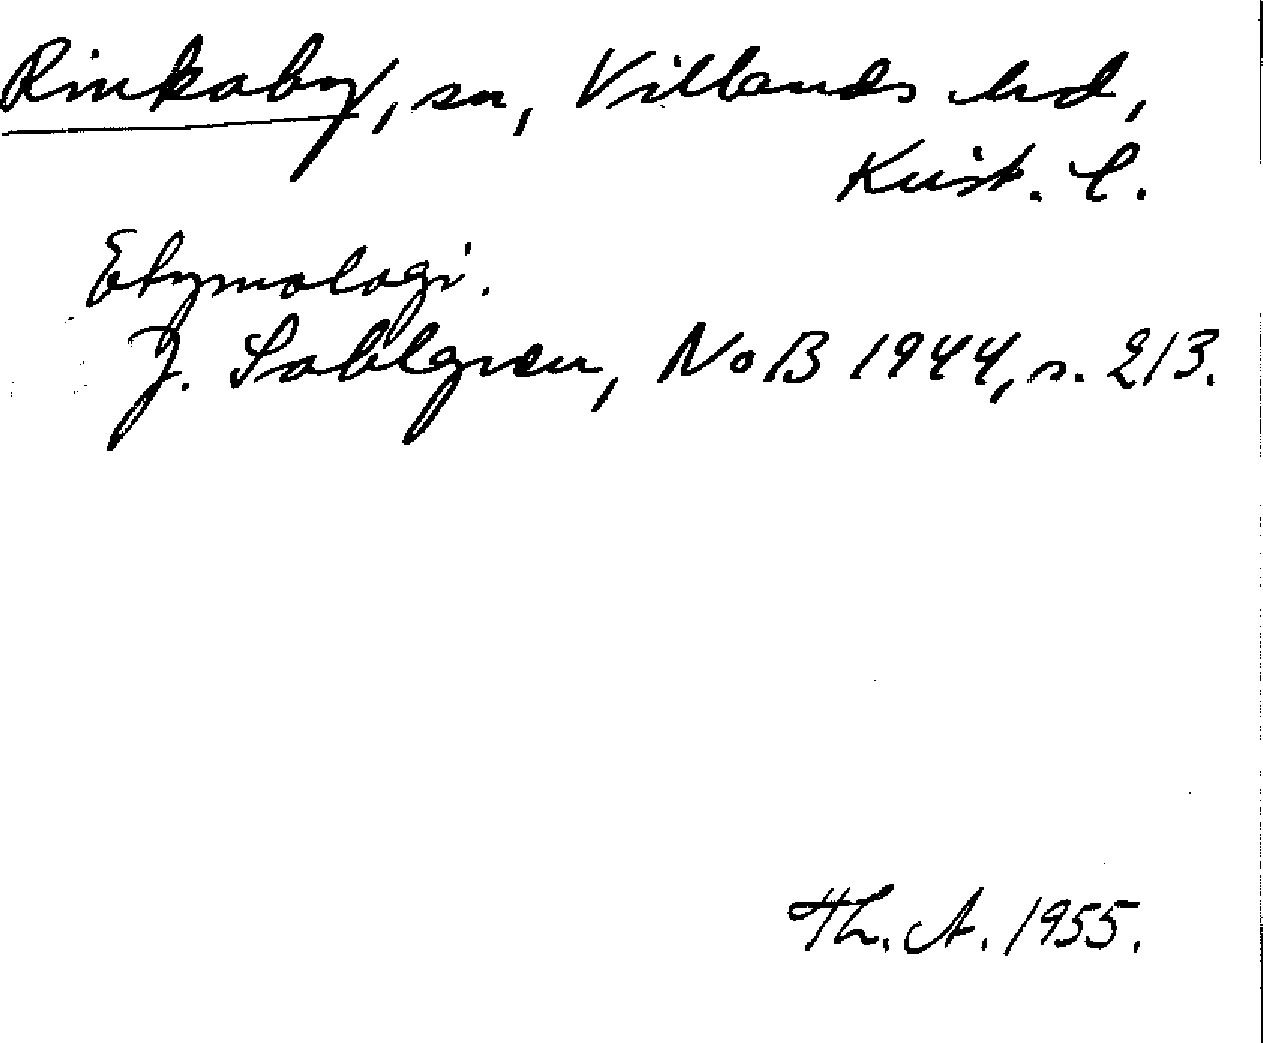 Rinkaby, sn, Villands hd,
Krist. l.
Etymologi.
J. Sahlgren, NoB 1944, s. 213.
Th. A. 1955.